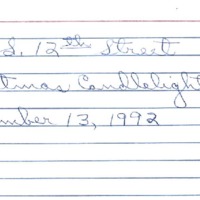 S. 12th Street
tmas Candlelight
mber 13, 1992